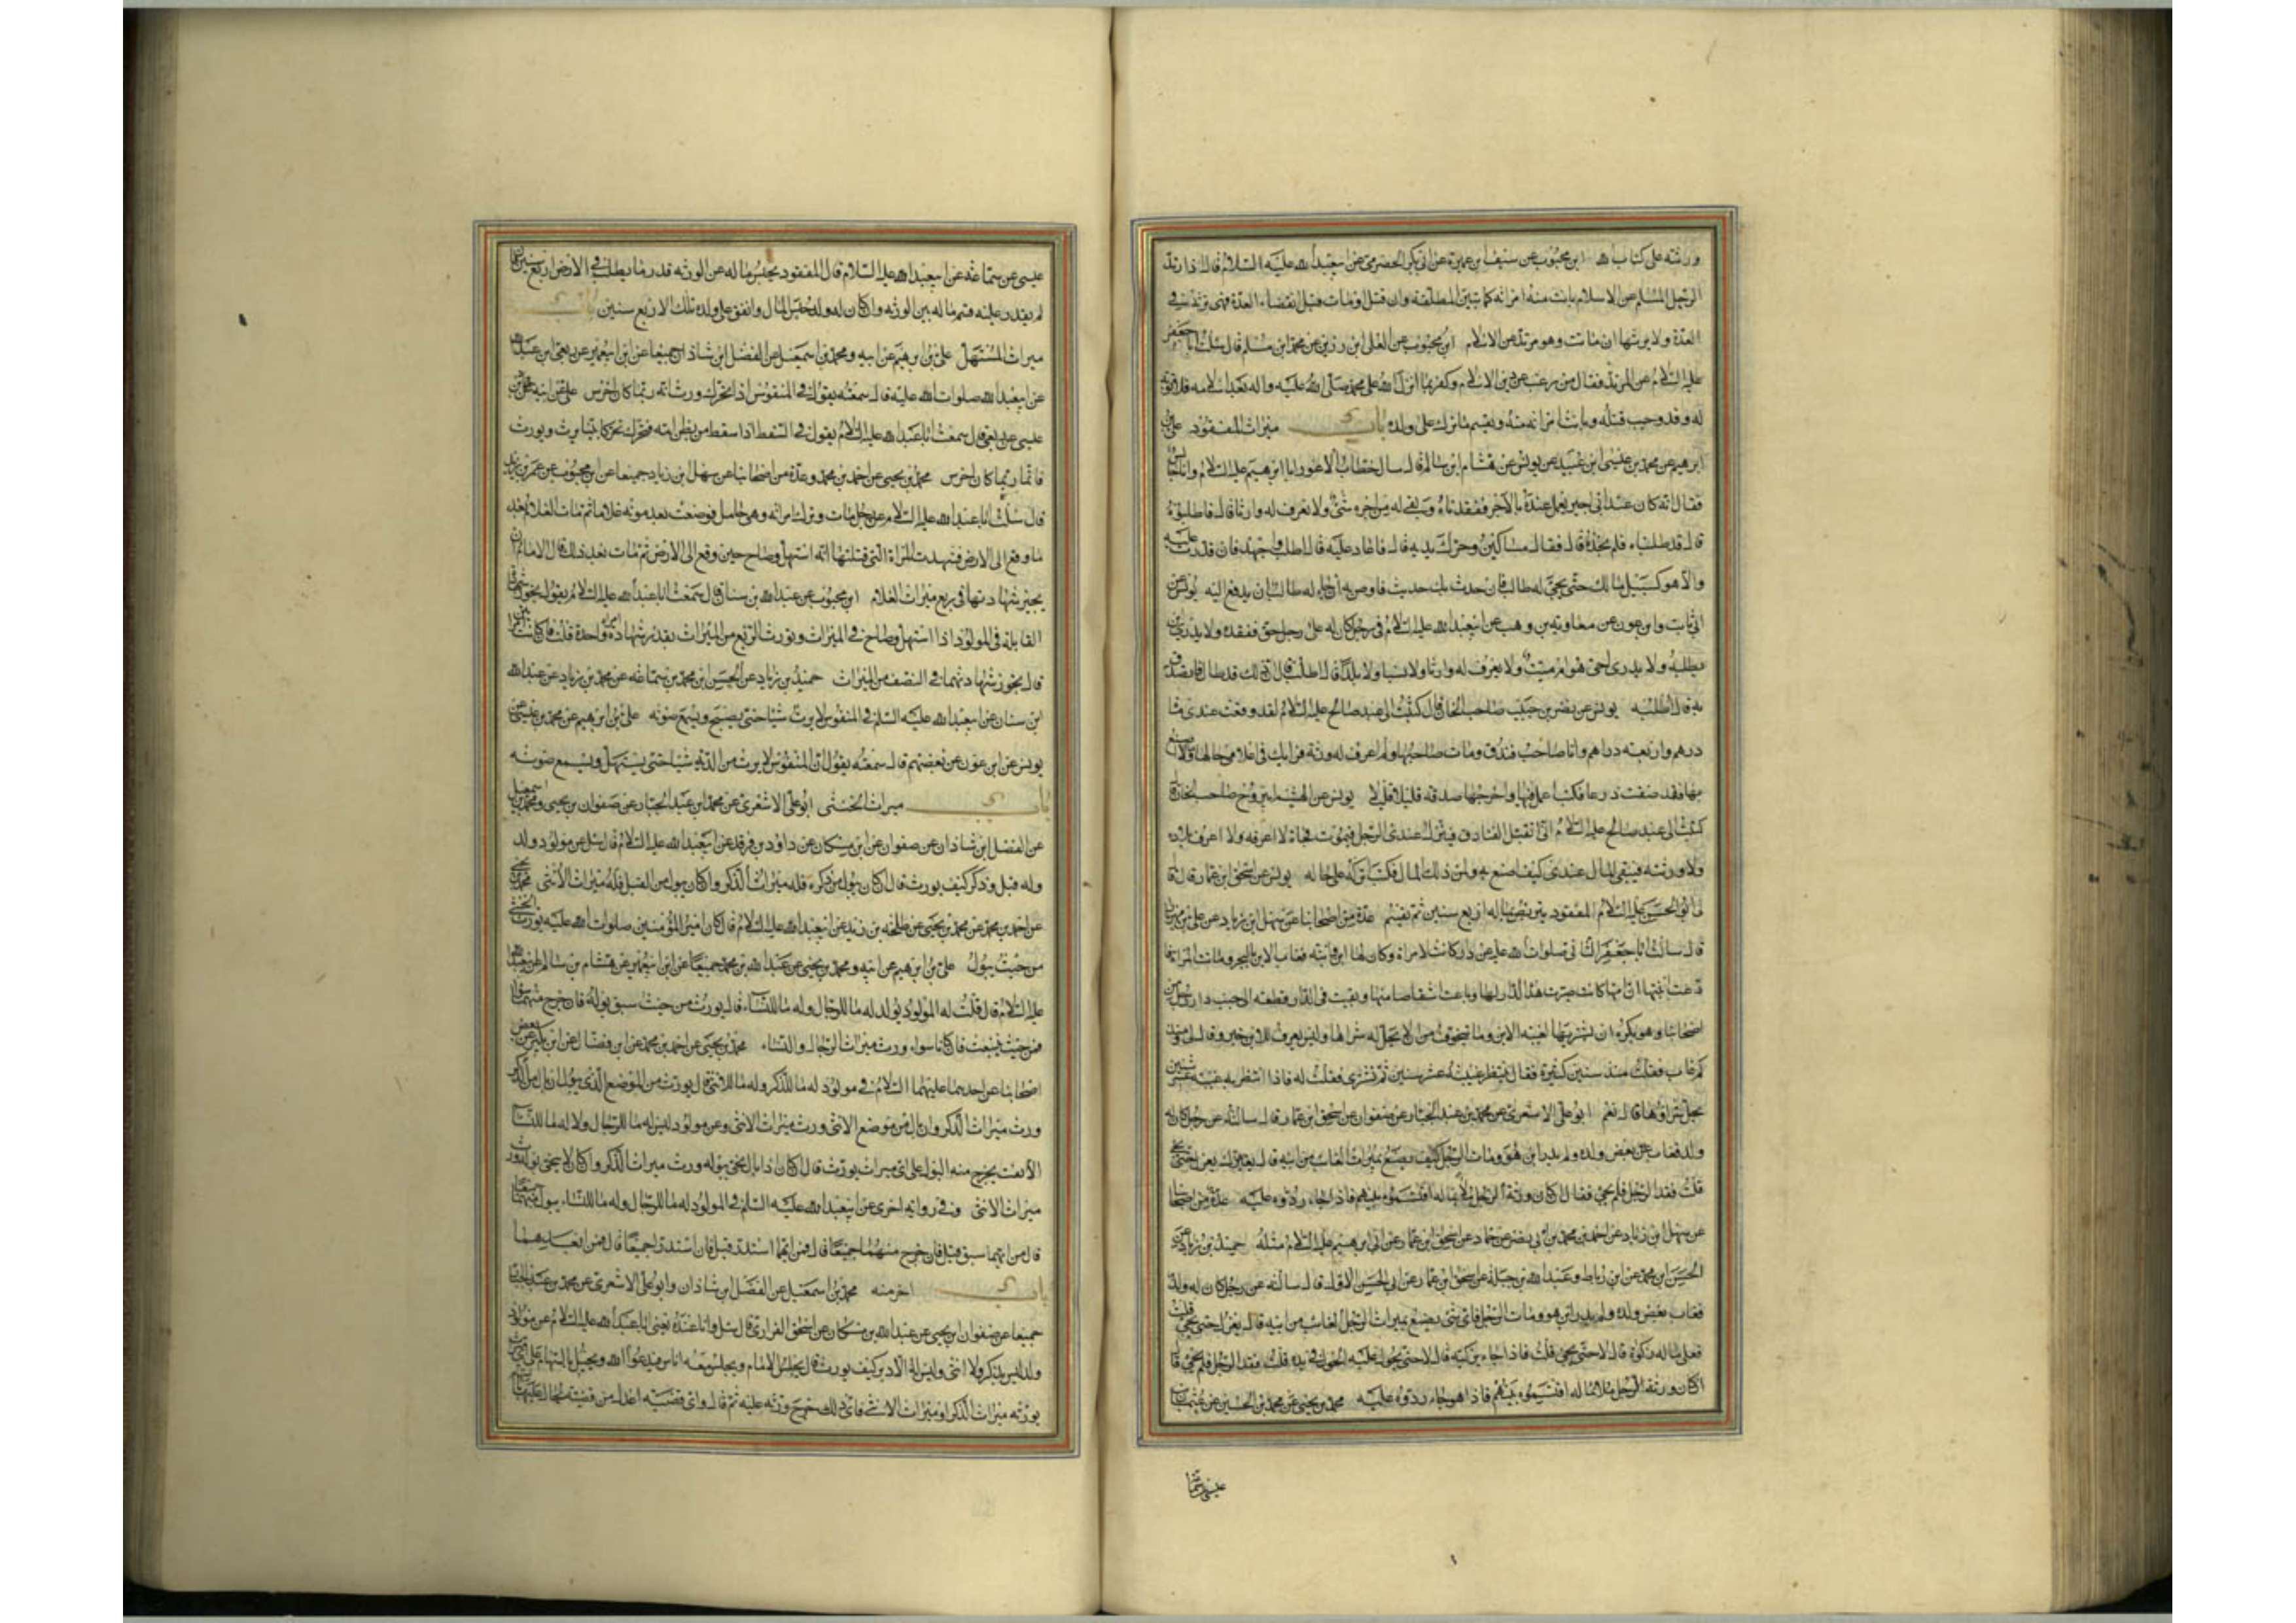 ورثته على كتاب الله ابن محبوب عن سيف ابن عميرة عن ابي بكر الحضرمي عن ابيعبدالله عليه السلام قال اذا ارتد
الرجل المسلم عن الاسلام بانت منه امراته كما تبين المطلقة وان قتل او مات قبل انقضاء العدة فهى ترثه في
العدة ولا يرثها ان ماتت وهو مرتد عن الاسلام ابن محبوب عن العلى ابن رزين عن محمد ابن مسلم قال سئلت ابا جعفر
عليه السلام عن المرتد فقال من رغب عن دين الاسلام وكفر بما انزل الله على محمد صلى الله عليه واله بعد اسلامه فلا توبة
له وقد وجب قتله وبانت امراته منه ويقسم ما ترك على ولده باب ميراث المفقود على بن
ابرهيم عن محمد بن عيسى ابن عبيد عن يونس عن هشام ابن سالم قال سال خطاب الاعور ابا ابرهيم عليه السلام وانا جالس
فقال انه كان عند ابي اجير يعمل عنده بالاجر ففقدناه وبقى له من اجره شئ ولا نعرف له وارثا قال فاطلبوه
قال قد طلبناه فلم نجده قال فقال مساكين وحرك يديه قال فاعاد عليه قال اطلب واجهد فان قدرت عليه
والا هو كسبيل مالك حتى يجئ له طالب فان حدث بك حدث فاوص به ان جاء له طالب ان يدفع اليه يونس عن
ابي ثابت وابن عون عن معاوية بن وهب عن ابيعبدالله عليه السلام في رجل كان له على رجل حق ففقده ولا يدرى اين
يطلبه ولا يدرى احي هو ام ميت ولا يعرف له وارثا ولا نسبا ولا بلدا قال اطلب قال ان ذلك قد طال فاتصدق
به قال اطلبه يونس عن نصر بن حبيب صاحب الخان قال كتبت الى عبد صالح عليه السلام لقد وقعت عندى مائتا
درهم واربعة دراهم وانا صاحب فندق ومات صاحبها ولم اعرف له ورثة فرايك في اعلامي حالها وما اصنع
بها فقد ضقت ذرعا فكتب اعمل فيها واخرجها صدقة قليلا قليلا يونس عن الهيثم بن روح صاحب الخان قال
كتبت الى عبد صالح عليه السلام اني اتقبل الفنادق فينزل عندى الرجل فيموت فجاة لا اعرفه ولا اعرف بلده
ولا ورثته فيبقى المال عندى كيف اصنع به ولمن ذلك المال فكتب اتركه على حاله يونس عن اسحق ابن عمار قال قال
لي ابو الحسن عليه السلام المفقود يتربص بماله اربع سنين ثم يقسم عدة من اصحابنا عن سهل ابن زياد عن على بن مهزيار
قال سالت ابا جعفر الثاني صلوات الله عليه عن دار كانت لامراة وكان لها ابن وابنة فغاب الابن بالبحر وماتت المراة
فادعت ابنتها ان امها كانت صيرت هذه الدار لها وباعت اشقاصا منها وبقيت في الدار قطعة الى جنب دار رجل من
اصحابنا وهو يكره ان يشتريها لغيبة الابن وما يتخوف من ان لا يحل له شراها وليس يعرف للابن خبر فقال لي ومنذ
كم غاب فقلت منذ سنين كثيرة فقال ينتظر به غيبته عشر سنين ثم تشترى فقلت له فاذا انتظر به غيبة عشر سنين
يحل شراؤها قال نعم ابو على الاشعرى عن محمد بن عبد الجبار عن صفوان عن اسحق ابن عمار قال سالته عن رجل كان له
ولد فغاب بعض ولده ولم يدر اين هو ومات الرجل كيف يصنع بميراث الغائب من ابيه قال يعزل حتى يجئ
قلت فقد الرجل فلم يجئ فقال ان كان ورثة الرجل ملاء بماله اقتسموه بينهم فاذا جاء ردوه عليه عدة من اصحابنا
عن سهل ابن زياد عن احمد بن محمد بن ابي نصر عن حماد عن اسحق ابن عمار عن ابي ابرهيم عليه السلام مثله حميد بن زياد عن
الحسن ابن محمد عن ابن رباط وعبد الله بن جبلة عن اسحق ابن عمار عن ابي الحسن الاول قال سالته عن رجل كان له ولد
فغاب بعض ولده ولم يدر اين هو ومات الرجل فاى شئ يصنع بميراث الرجل الغائب من ابيه قال يعزل حتى يجئ قلت
فعلى ماله زكوة قال لا حتى يجئ قلت فاذا جاء يزكيه قال لا حتى يحول عليه الحول في يده قلت فقد الرجل فلم يجئ قال
ان كان ورثة الرجل ملاء بماله اقتسموه بينهم فاذا هو جاء ردوه عليه محمد بن يحيى عن محمد بن الحسين عن عثمان بن
عيسى عن سما
عيسى عن سماعة عن ابيعبدالله عليه السلام قال المفقود يحبس ماله عن الورثة قدر ما يطلب في الارض اربع سنين فان
لم يقدر عليه قسم ماله بين الورثة وان كان له ولد حبس المال وانفق على ولده تلك الاربع سنين باب
ميراث المستهل على بن ابرهيم عن ابيه ومحمد بن اسمعيل عن الفضل ابن شاذان جميعا عن ابن ابيعمير عن ربعي ابن عبدالله
عن ابيعبدالله صلوات الله عليه قال سمعته يقول في المنفوس اذا تحرك ورث انه ربما كان اخرس على عن ابيه عن حماد بن
عيسى عن ربعي قال سمعت اباعبدالله عليه السلام يقول في السقط اذا سقط من بطن امه فتحرك تحركا بينا يرث ويورث
فانه ربما كان اخرس محمد بن يحيى عن احمد بن محمد وعدة من اصحابنا عن سهل ابن زياد جميعا عن ابن محبوب عن عمر بن يزيد
قال سئلت اباعبدالله عليه السلام عن رجل مات وترك امراته وهي حامل فوضعت بعد موته غلاما ثم مات الغلام بعد
ما وقع الى الارض فشهدت المراة التي قبلتها انه استهل وصاح حين وقع الى الارض ثم مات بعد ذلك قال على الامام ان
يجيز شهادتها في ربع ميراث الغلام ابن محبوب عن عبدالله بن سنان قال سمعت اباعبدالله عليه السلام يقول يجوز شهادة
القابلة في المولود اذا استهل وصاح في الميراث ويورث الربع من الميراث بقدر شهادة امراة واحدة قلت فان كانت امراتين
قال يجوز شهادتهما في النصف من الميراث حميد بن زياد عن الحسن ابن محمد بن سماعة عن محمد بن زياد عن عبدالله
ابن سنان عن ابيعبدالله عليه السلم في المنفوس لا يرث شيا حتى يصيح ويسمع صوته على بن ابرهيم عن محمد بن عيسى عن
يونس عن ابن عون عن بعضهم قال سمعته يقول ان المنفوس لا يرث من الدية شيا حتى يستهل ويسمع صوته
باب ميراث الخنثى ابوعلى الاشعرى عن محمد ابن عبد الجبار عن صفوان بن يحيى ومحمد بن اسمعيل
عن الفضل ابن شاذان عن صفوان عن ابن مسكان عن داود بن فرقد عن ابيعبدالله عليه السلام قال سئل عن مولود ولد
وله قبل وذكر كيف يورث قال ان كان يبول من ذكره فله ميراث الذكر وان كان يبول من القبل فله ميراث الانثى محمد بن يحيى
عن احمد بن محمد عن محمد بن يحيى عن طلحة بن زيد عن ابيعبدالله عليه السلام قال كان امير المؤمنين صلوات الله عليه يورث الخنثى
من حيث يبول على بن ابرهيم عن ابيه ومحمد بن يحيى عن عبدالله بن محمد جميعا عن ابن ابيعمير عن هشام بن سالم عن ابيعبدالله
عليه السلام قال قلت له المولود يولد له ما للرجال وله ما للنساء قال يورث من حيث سبق بوله فان خرج منهما سواء
فمن حيث ينبعث فان كانا سواء ورث ميراث الرجال والنساء محمد بن يحيى عن احمد بن محمد عن ابن فضال عن ابن بكير عن بعض
اصحابنا عن احدهما عليهما السلام في مولود له ما للذكر وله ما للانثى قال يورث من الموضع الذى يبول ان بال من الذكر
ورث ميراث الذكر وان بال من موضع الانثى ورث ميراث الانثى وعن مولود ليس له ما للرجال ولا له ما للنساء
الا ثقب يخرج منه البول على اى ميراث يورث قال ان كان اذا بال نحى بوله ورث ميراث الذكر وان كان لا ينحى بوله ورث
ميراث الانثى وفي رواية اخرى عن ابيعبدالله عليه السلم في المولود له ما للرجال وله ما للنساء يبول منهما جميعا
قال من ايهما سبق قيل فان خرج منهما جميعا قال فمن ايهما استدر قيل فان استدرا جميعا قال فمن ابعدهما
باب اخر منه محمد بن اسمعيل عن الفضل ابن شاذان وابوعلى الاشعرى عن محمد بن عبد الجبار
جميعا عن صفوان ابن يحيى عن عبدالله بن مسكان عن اسحق الفزارى قال سئل وانا عنده يعنى اباعبدالله عليه السلام عن مولود
ولد ليس بذكر ولا انثى وليس له الا دبر كيف يورث قال يجلس الامام ويجلس معه اناس فيدعو الله ويجيل بالسهام على اى ميراث
يورثه ميراث الذكر او ميراث الانثى فاى ذلك خرج ورثه عليه ثم قال واى قضية اعدل من قضية يجال عليها بالسهام